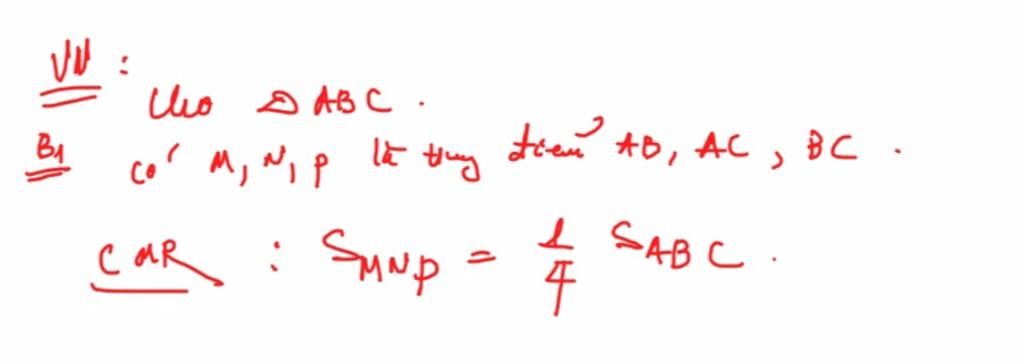 VN :
Cho △ ABC .
B1 có M, N, P là trung điểm AB, AC, BC .
CMR : S_MNP = 1/4 S_ABC .